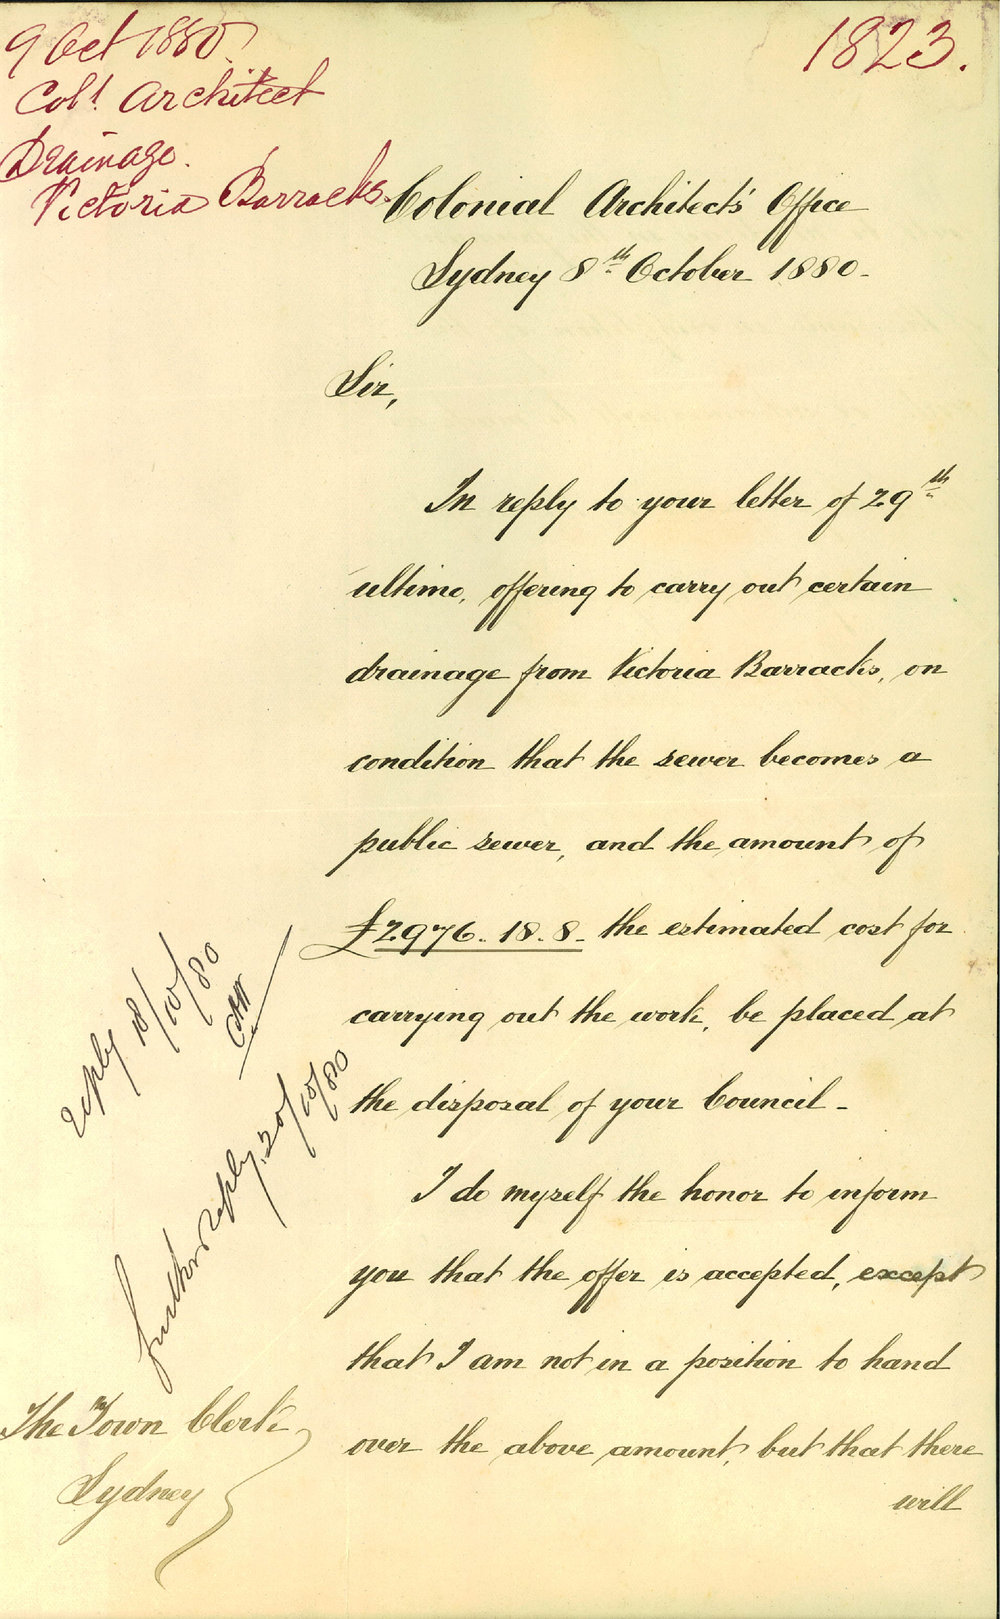 9 Oct 1880.
1823.
Col! Architect
Drainage.
Victoria Barracks.
Colonial Architect's Office
Sydney 8th October 1880-
Sir,
In reply to your letter of 29th
ultimo, offering to carry out certain
drainage from Victoria Barracks, on
condition that the sewer becomes a
public sewer, and the amount of
£2976.18.8- the estimated cost for
carrying out the work, be placed at
the disposal of your Council-
I do myself the honor to inform
you that the offer is accepted, except
that I am not in a position to hand
over the above amount, but that there
will
reply 18/10/80
further reply 20/10/80
The Town Clerk
Sydney